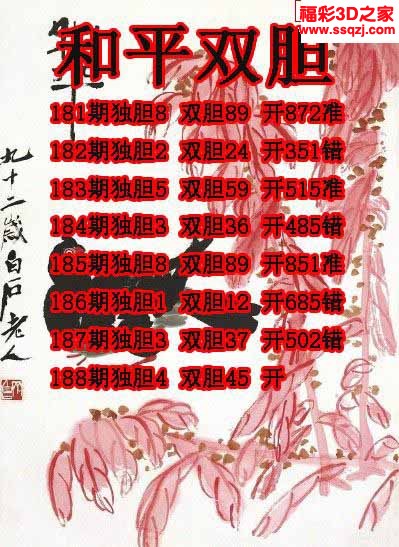 福彩3D之家
www.ssqzj.com
和平双胆
181期独胆8 双胆89 开872准
182期独胆2 双胆24 开351错
183期独胆5 双胆59 开515准
184期独胆3 双胆36 开485错
185期独胆8 双胆89 开851准
186期独胆1 双胆12 开685错
187期独胆3 双胆37 开502错
188期独胆4 双胆45 开
九十二歲白石老人